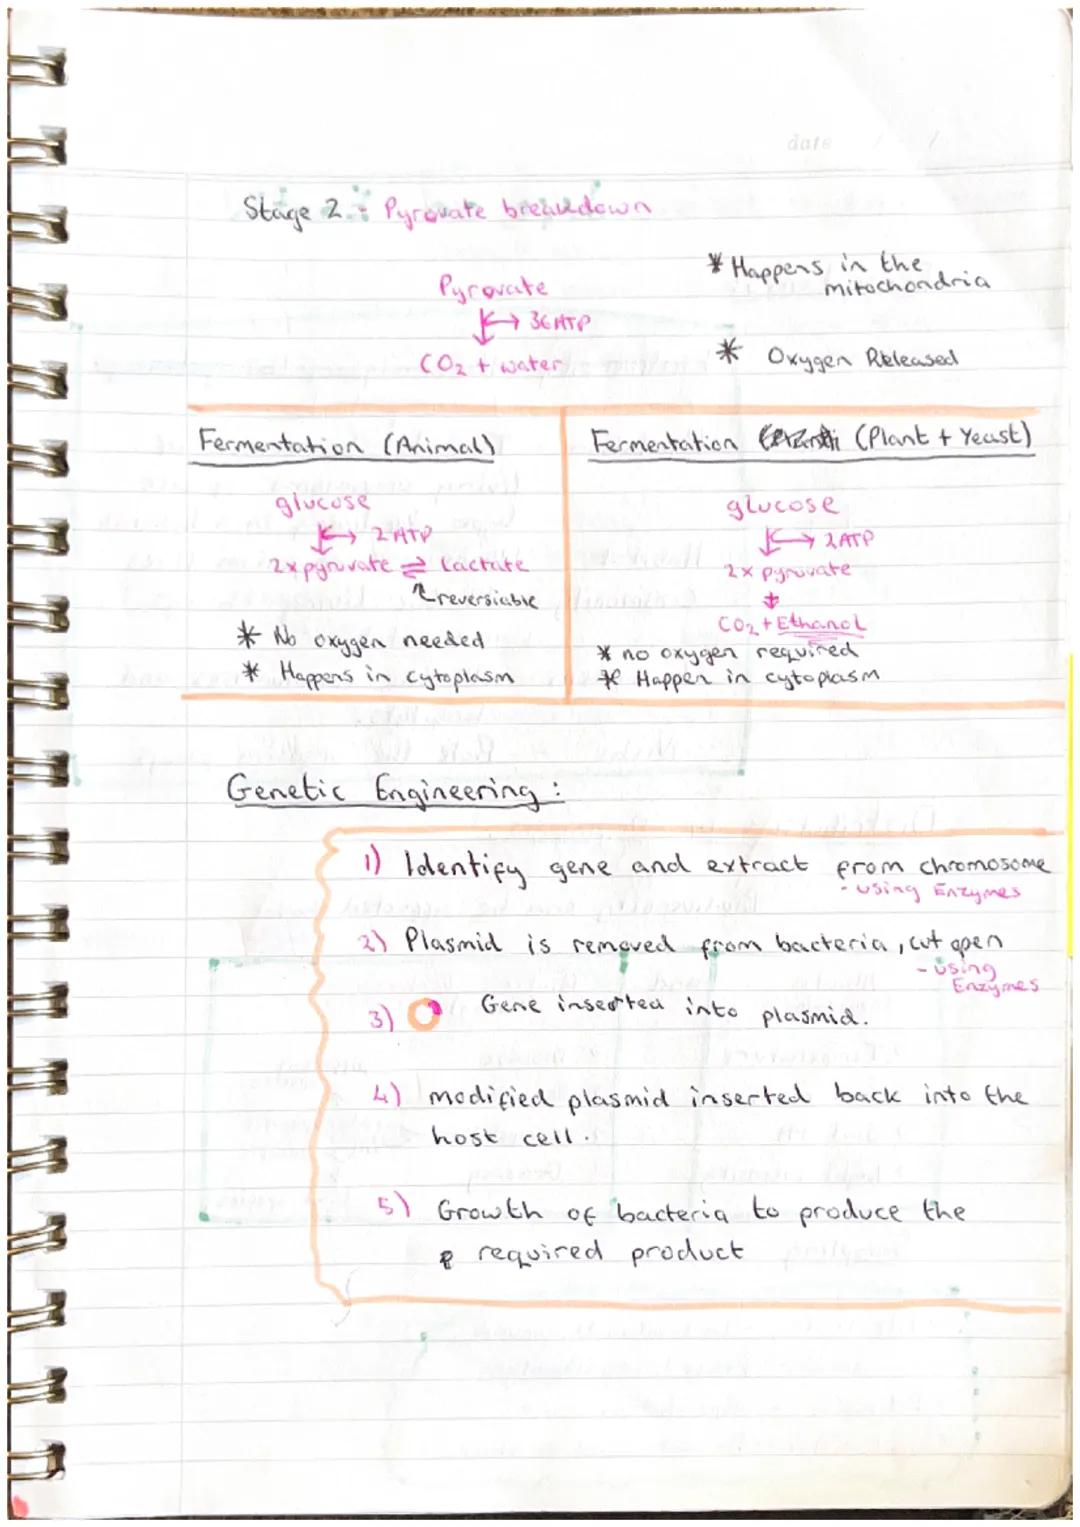 date
Stage 2 : Pyrovate breakdown
* Happens in the
mitochondria
Pyrovate
→ 36 ATP
CO2 + water
* Oxygen Released
Fermentation (Animal)
glucose
→ 2 ATP
2x pyruvate ⇌ lactate
reversiable
* No oxygen needed
* Happens in cytoplasm
Fermentation (Plant + Yeast)
glucose
→ 2ATP
2x pyruvate
↓
CO2 + Ethanol
* no oxygen required
* Happen in cytoplasm
Genetic Engineering :
1) Identify gene and extract from chromosome
- using Enzymes
2) Plasmid is removed from bacteria, cut open
- using
Enzymes
3) Gene inserted into plasmid.
4) modified plasmid inserted back into the
host cell.
5) Growth of bacteria to produce the
required product